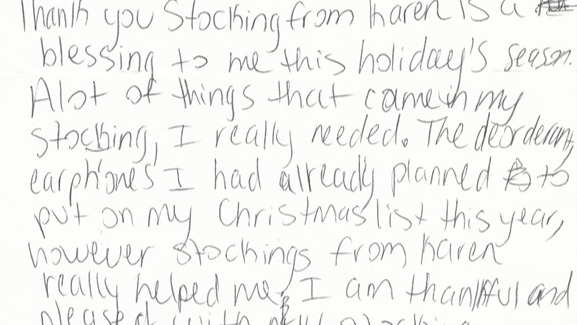 Thank you Stocking from Karen is a
blessing to me this holiday's season.
Alot of things that came in my
stocking, I really needed. The deorderant,
earphones I had already planned to
put on my Christmas list this year,
however stockings from Karen
really helped me. I am thankful and
pleased with my